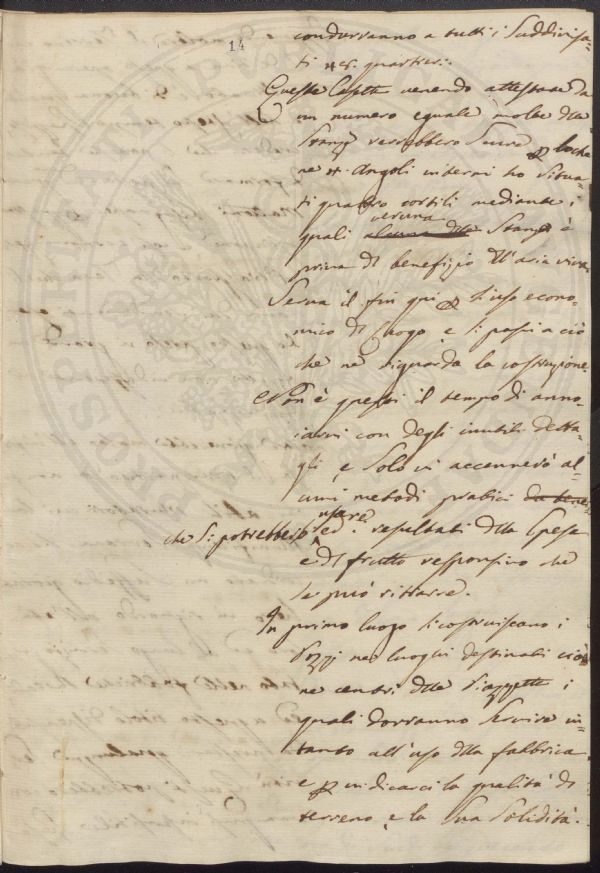 14
condurranno a tutti i Suddivisa-
ti 4. quartieri:
Queste Casette venendo attestate da
un numero eguale molte dtte
Stanze verrebbero Scure, 
ne 4. Angoli interni ho Situa-
ti quattro cortili mediante i
veruna
quali alcuna dtta Stanza è
priva di benefizio dll'aria viva.
Serva il fin qui p l'uso econo-
mico di luogo, e si passi a ciò
che ne riguarda la costruzione
Non è questi il tempo di anno-
iarvi con degli inutili detta-
gli, e Solo vi accennerò al-
cuni metodi pratici da tene
usare
che Si potrebbero, ed i resultati dlla Spesa
e di frutto responsivo che
Se può ritrarre.
In primo luogo Si costruiscano i
Pozzi ne luoghi destinati cioè
ne centri dlle Piazzette i
quali dovranno Servire in-
tanto all'uso dlla fabbrica
e p indicarci la qualità di
terreno, e la Sua Solidità.